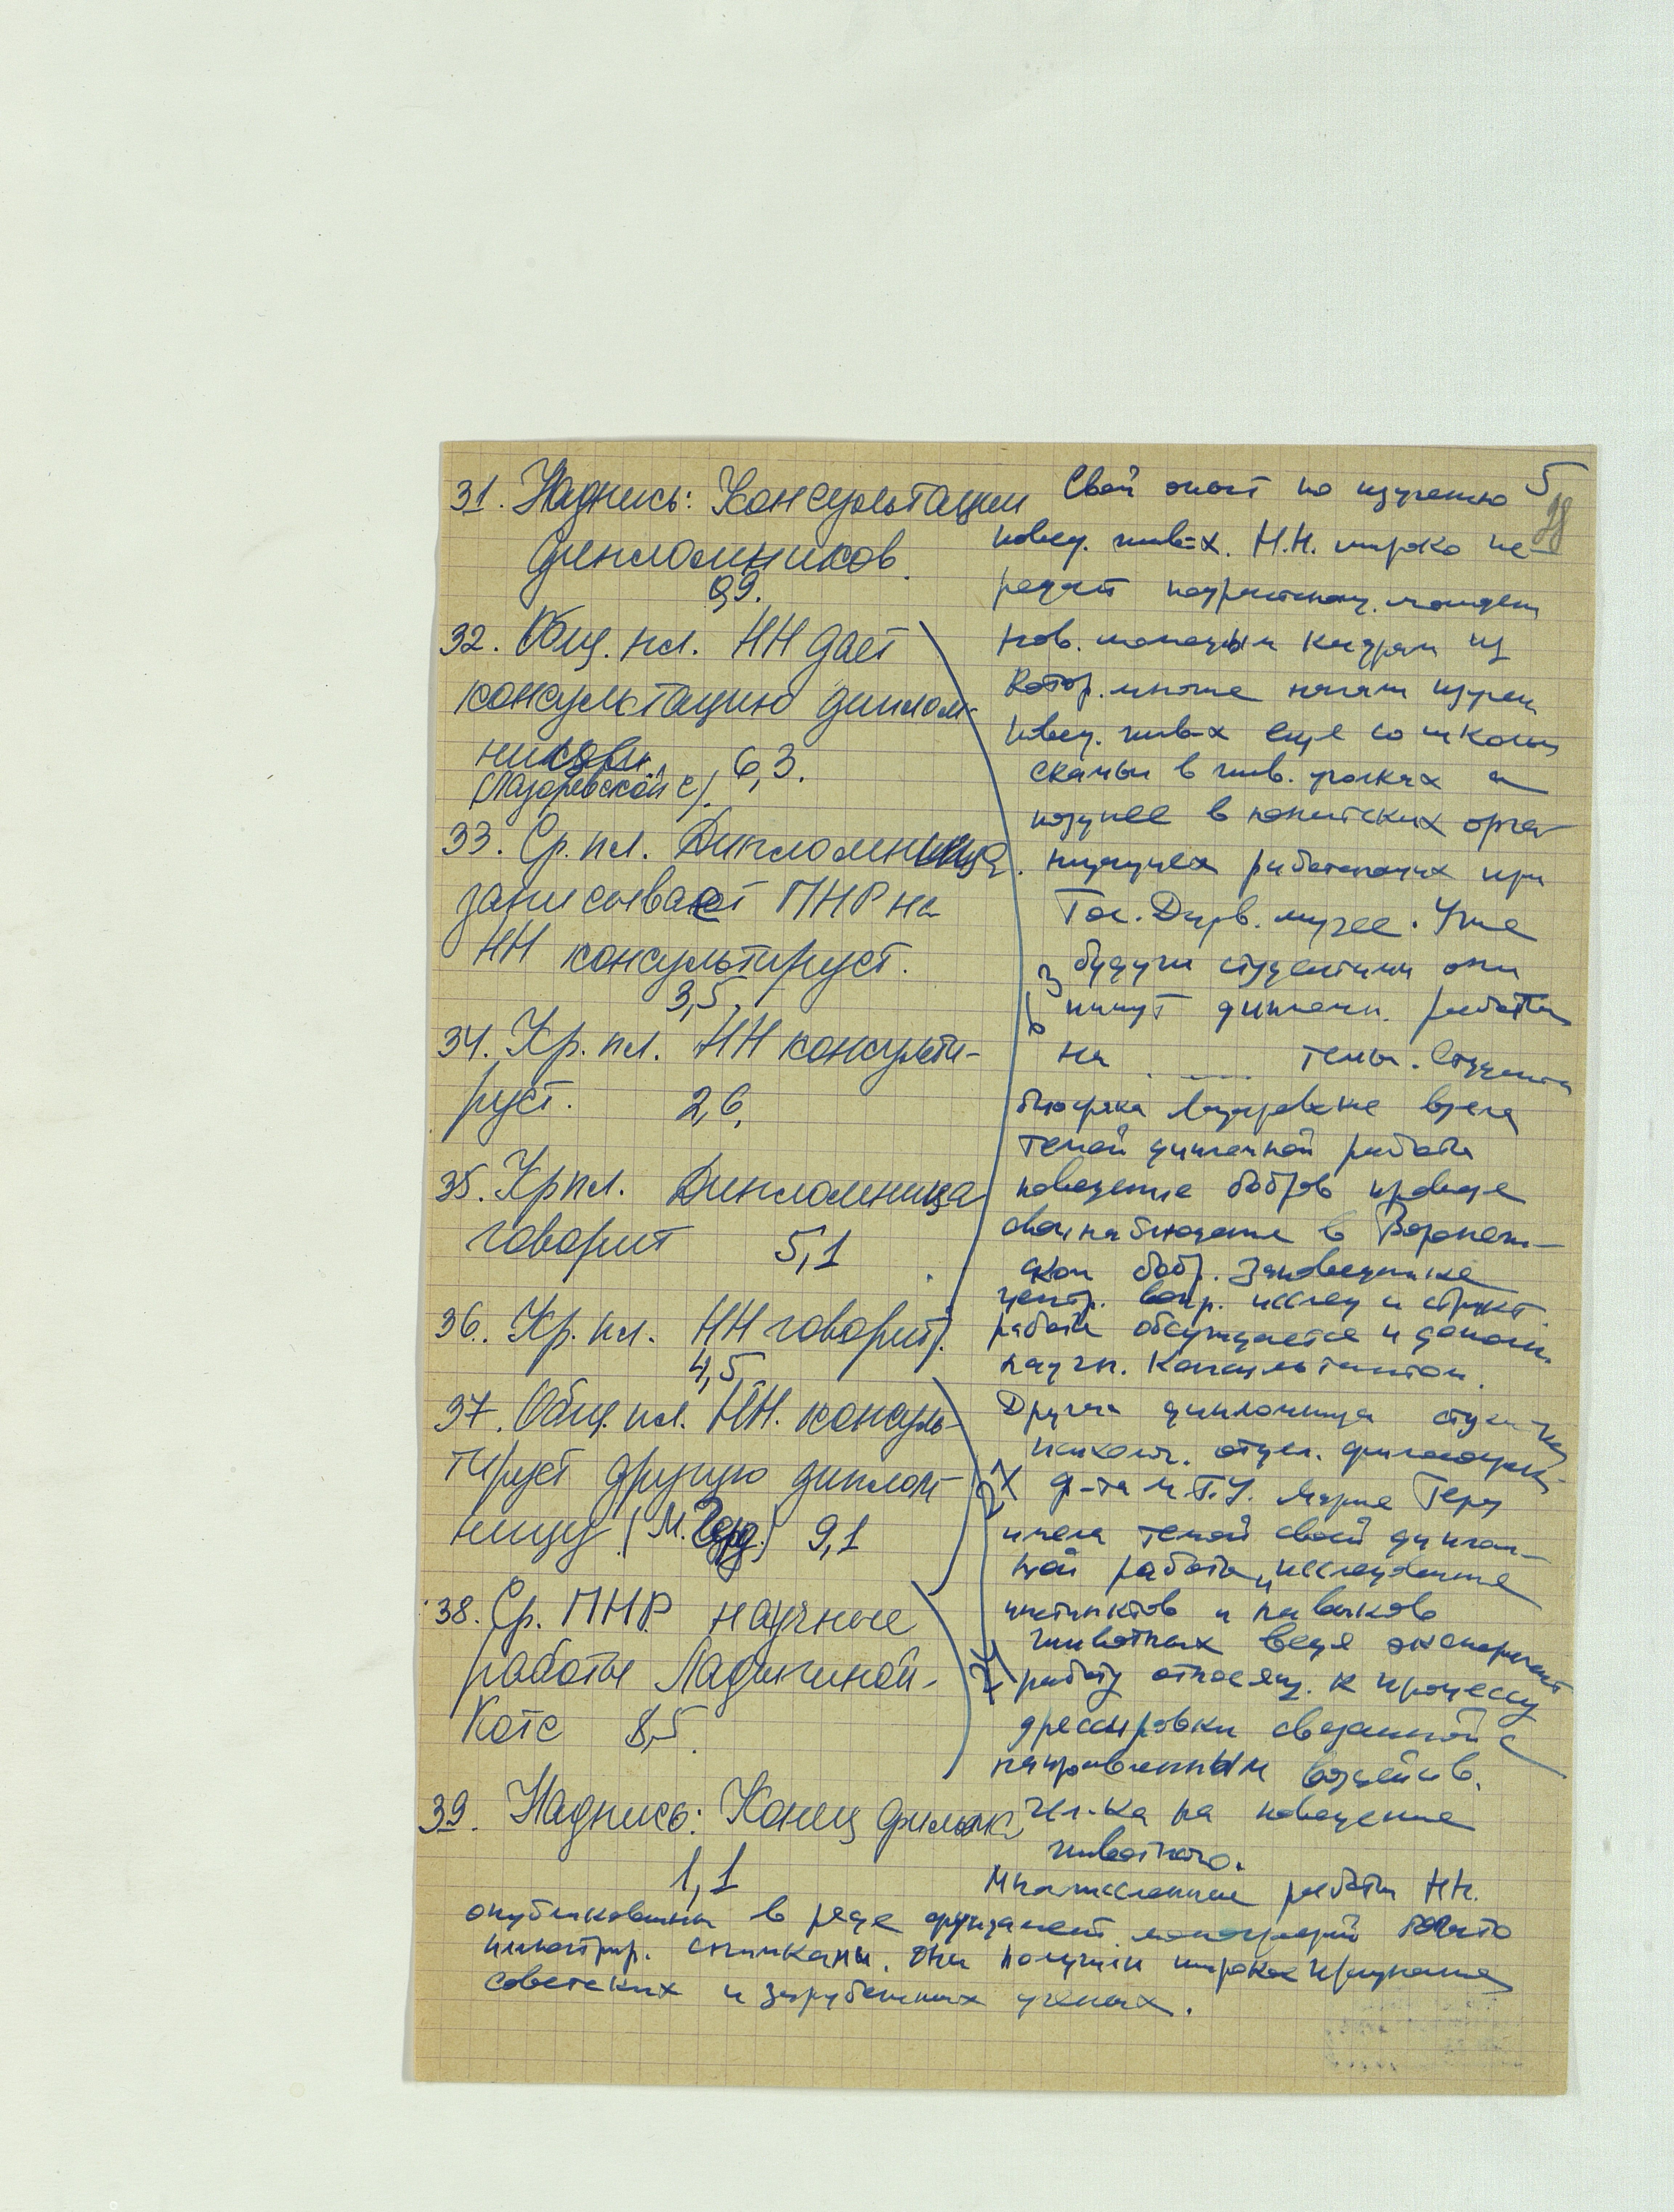 31. Надпись: Консультации
дипломников.
0,9.
32. Общ. пл. НН дает
консультацию диплом-
(Лазаревской С). 6,3.
33. Ср. пл. Дипломница
записывает ПНР на
НН консультирует.
3,5.
34. Кр. пл. НН консульти-
рует. 2,6.
35. Кр пл. Дипломница
говорит 5,1
36. Кр. пл. НН говорит.
4,5
37. Общ. пл. НН. консуль-
тирует другую диплом-
ницу (М. Герд) 9,1
38. Ср. ПНР. научные
работы Ладыгиной-
Котс 8,5.
39. Надпись: Конец фильма
1,1
5
Свой опыт по изучению
повед. жив-х. Н.Н. широко пе-
редает
нов. молодым кадрам из
котор. многие начали изучен
повед. жив-х еще со школь
скамьи в жив. уголках а
позднее в юннатских орга-
низациях работающих при
Гос. Дарв. музее. Уже
будучи студентами они
пишут диплом. работы
на темы. Студентка
биофака Лазаревская взяла
темой дипломной работы
поведение бобров проведя
свои наблюдения в Воронеж-
ском бобр. Заповеднике
центр. вопр. исслед и структ.
работы обсуждается и дополн.
научн. Консультантом.
Другая дипломница студентка
психолог. отдел. философск.
ф-та М.Г.У. Мария Герд
имела темой своей диплом-
ной работы „исследование
инстинктов и навыков
животных ведя эксперимент
работу относящ. к процессу
дрессировки связанной с
направленным воздейств.
Чел-ка на поведение
животного.
Многочисленные работы НН.
опубликованы в ряде фундамент. монографий богато
иллюстрир. снимками. Они получили широкое признание
советских и зарубежных ученых.